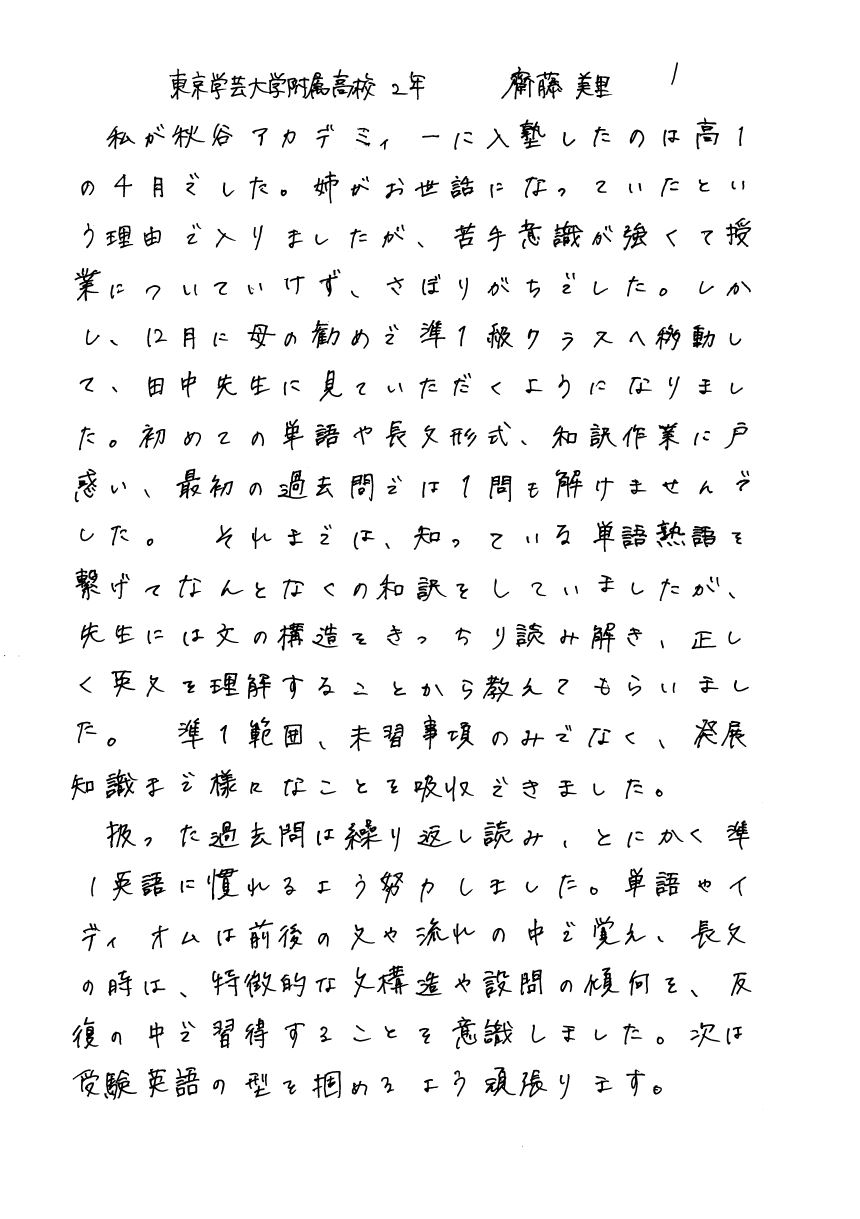 東京学芸大学附属高校 2年 齊藤 美里 1
私が秋谷アカデミィーに入塾したのは高1
の4月でした。姉がお世話になっていたとい
う理由で入りましたが、苦手意識が強くて授
業についていけず、さぼりがちでした。しか
し、12月に母の勧めで準1級クラスへ移動し
て、田中先生に見ていただくようになりまし
た。初めての単語や長文形式、和訳作業に戸
惑い、最初の過去問では1問も解けませんで
した。 それまでは、知っている単語熟語を
繋げてなんとなくの和訳をしていましたが、
先生には文の構造をきっちり読み解き、正し
く英文を理解することから教えてもらいまし
た。 準1範囲、未習事項のみでなく、発展
知識まで様々なことを吸収できました。
扱った過去問は繰り返し読み、とにかく準
1英語に慣れるよう努力しました。単語やイ
ディオムは前後の文や流れの中で覚え、長文
の時は、特徴的な文構造や設問の傾向を、反
復の中で習得することを意識しました。次は
受験英語の型を掴めるよう頑張ります。